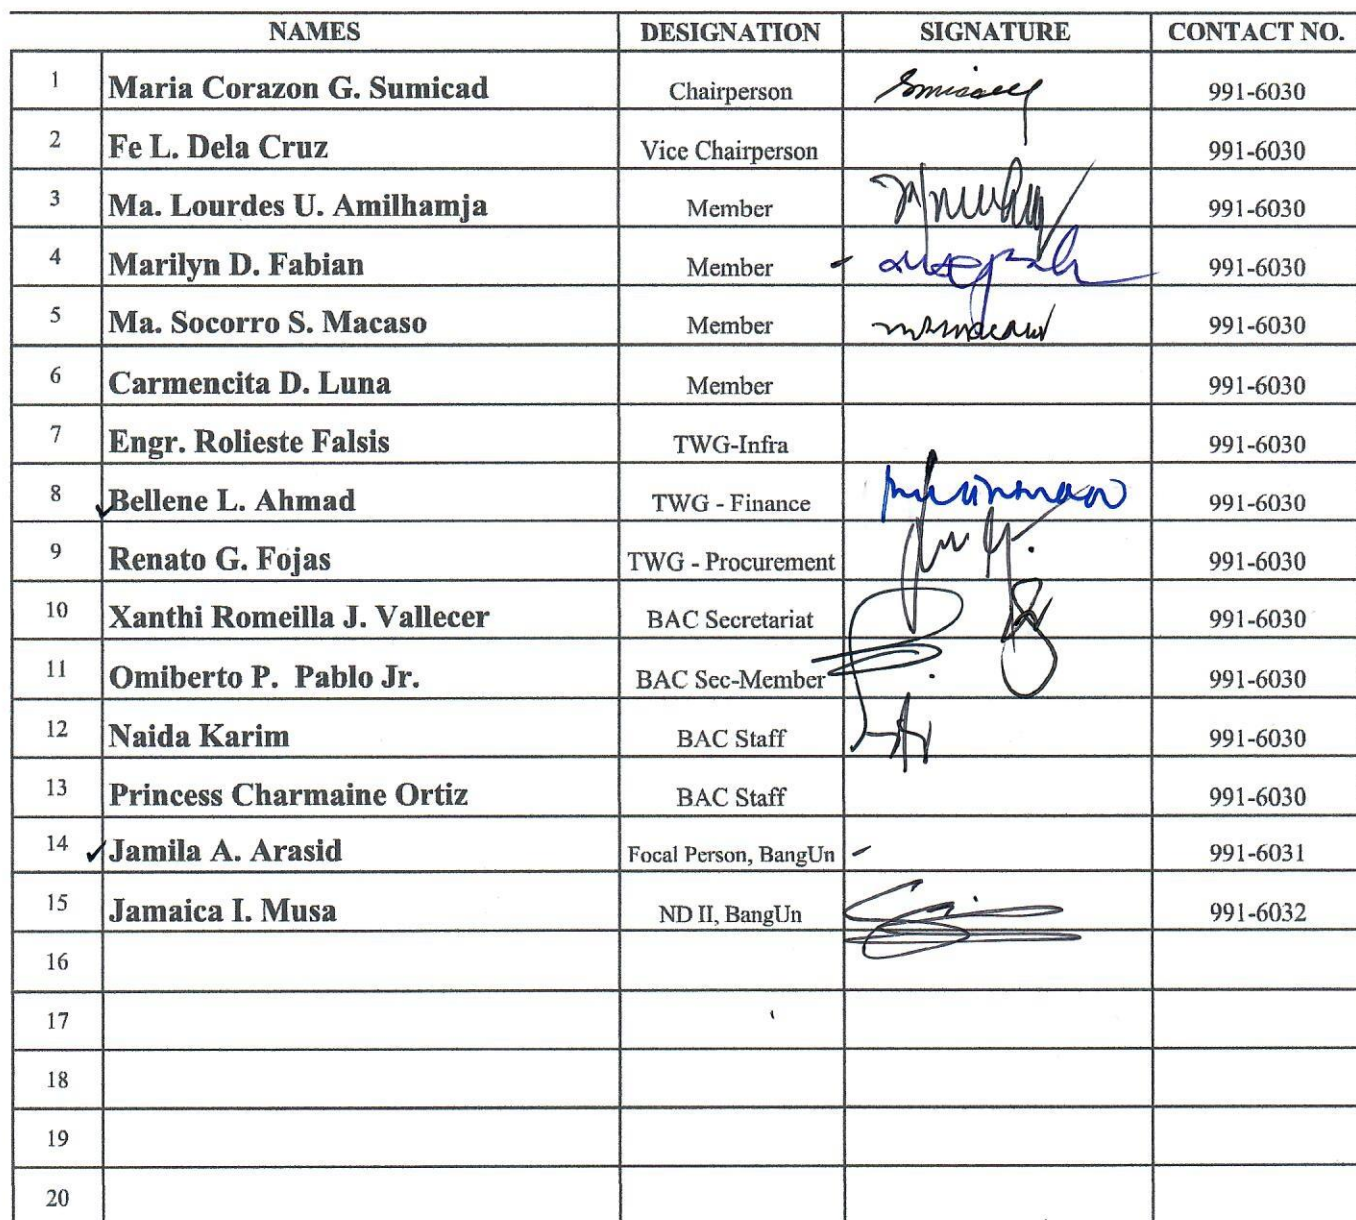 NAMES DESIGNATION SIGNATURE CONTACT NO.
1 Maria Corazon G. Sumicad Chairperson 991-6030
2 Fe L. Dela Cruz Vice Chairperson 991-6030
3 Ma. Lourdes U. Amilhamja Member 991-6030
4 Marilyn D. Fabian Member 991-6030
5 Ma. Socorro S. Macaso Member 991-6030
6 Carmencita D. Luna Member 991-6030
7 Engr. Rolieste Falsis TWG-Infra 991-6030
8 Bellene L. Ahmad TWG - Finance 991-6030
9 Renato G. Fojas TWG - Procurement 991-6030
10 Xanthi Romeilla J. Vallecer BAC Secretariat 991-6030
11 Omiberto P. Pablo Jr. BAC Sec-Member 991-6030
12 Naida Karim BAC Staff 991-6030
13 Princess Charmaine Ortiz BAC Staff 991-6030
14 Jamila A. Arasid Focal Person, BangUn 991-6031
15 Jamaica I. Musa ND II, BangUn 991-6032
16
17
18
19
20